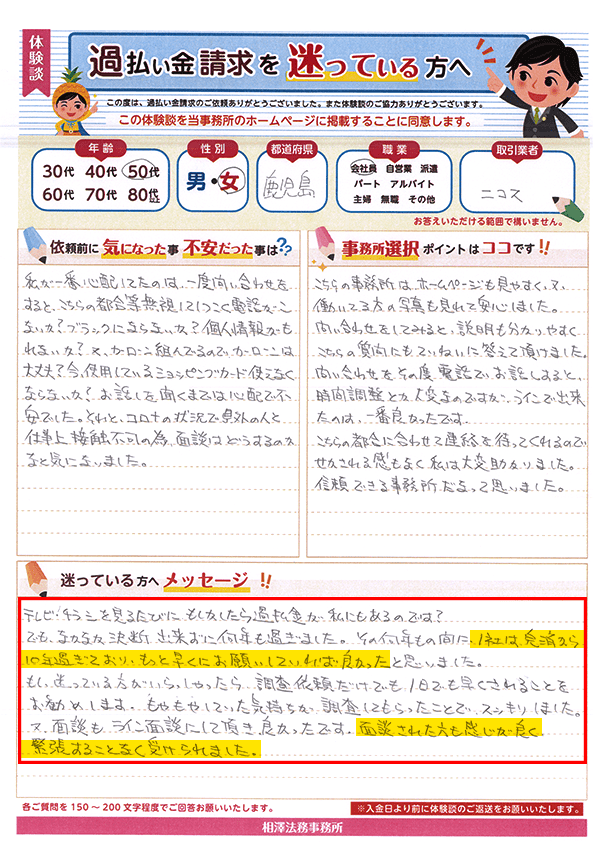 体験談
過払い金請求を迷っている方へ
この度は、過払い金請求のご依頼ありがとうございました。また体験談のご協力ありがとうございます。
この体験談を当事務所のホームページに掲載することに同意します。
年齢
30代 40代 50代
60代 70代 80代以上
性別
男・女
都道府県
鹿児島
職業
会社員 自営業 派遣
パート アルバイト
主婦 無職 その他
取引業者
ニコス
お答えいただける範囲で構いません。
依頼前に気になった事 不安だった事は??
私が一番心配してたのは、一度問い合わせを
すると、こちらの都合等無視してしつこく電話がこ
ないか?ブラックにならないか?個人情報がも
れないか?又、カーローン組んでるので、カーローンは
大丈夫?今、使用しているショッピングカード使えなく
ならないか?お話しを聞くまでは心配で不
安でした。それと、コロナの状況で県外の人と
仕事上接触不可の為、面談はどうするのか
など気になりました。
事務所選択ポイントはココです!!
こちらの事務所は、ホームページも見やすく、又、
働いてる方の写真も見れて安心しました。
問い合わせをしてみると、説明も分かりやすく
こちらの質問にもていねいに答えて頂けました。
問い合わせをその度、電話でお話しすると、
時間調整とか大変なのですが、ラインで出来
たのは、一番良かったです。
こちらの都合に合わせて連絡を待ってくれるので
せかされる感もなく私は大変助かりました。
信頼できる事務所だなって思いました。
迷っている方へメッセージ!!
テレビ・チラシを見るたびに、もしかしたら過払金が私にもあるのでは?
でも、なかなか決断出来ずに何年も過ぎました。その何年もの間に、1社は、完済から
10年過ぎており、もっと早くにお願いしていれば良かったと思いました。
もし、迷っている方がいらっしゃったら、調査依頼だけでも1日でも早くされることを
お勧めします。もやもやしていた気持ちが、調査してもらったことで、スッキリしました。
又、面談も、ライン面談にして頂き良かったです。面談された方も感じが良く
緊張することなく受けられました。
各ご質問を150～200文字程度でご回答お願いいたします。
※入金日より前に体験談のご返送をお願いいたします。
相澤法務事務所